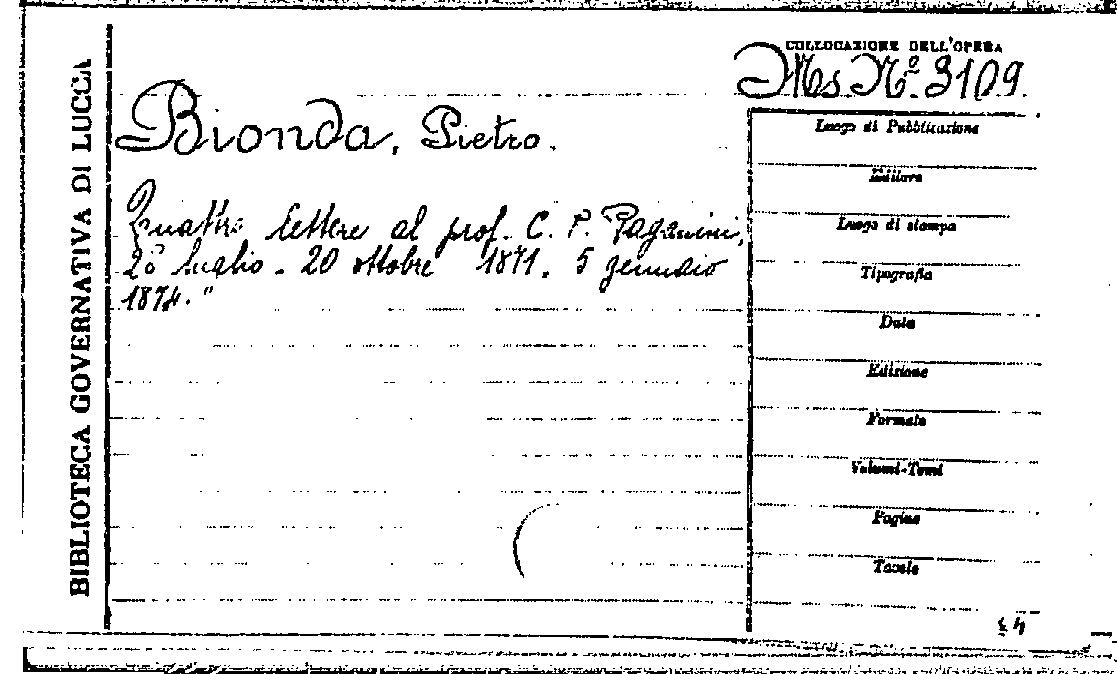 BIBLIOTECA GOVERNATIVA DI LUCCA
COLLOCAZIONE DELL'OPERA
Ms. Nº. 3109.
Bionda, Pietro.
Quattro lettere al prof. C. P. Paganini,
luglio - 20 ottobre 1871. 5 gennaio
1874."
Luogo di Pubblicazione
Editore
Luogo di stampa
Tipografia
Data
Edizione
Formato
Volumi-Tomi
Pagine
Tavole